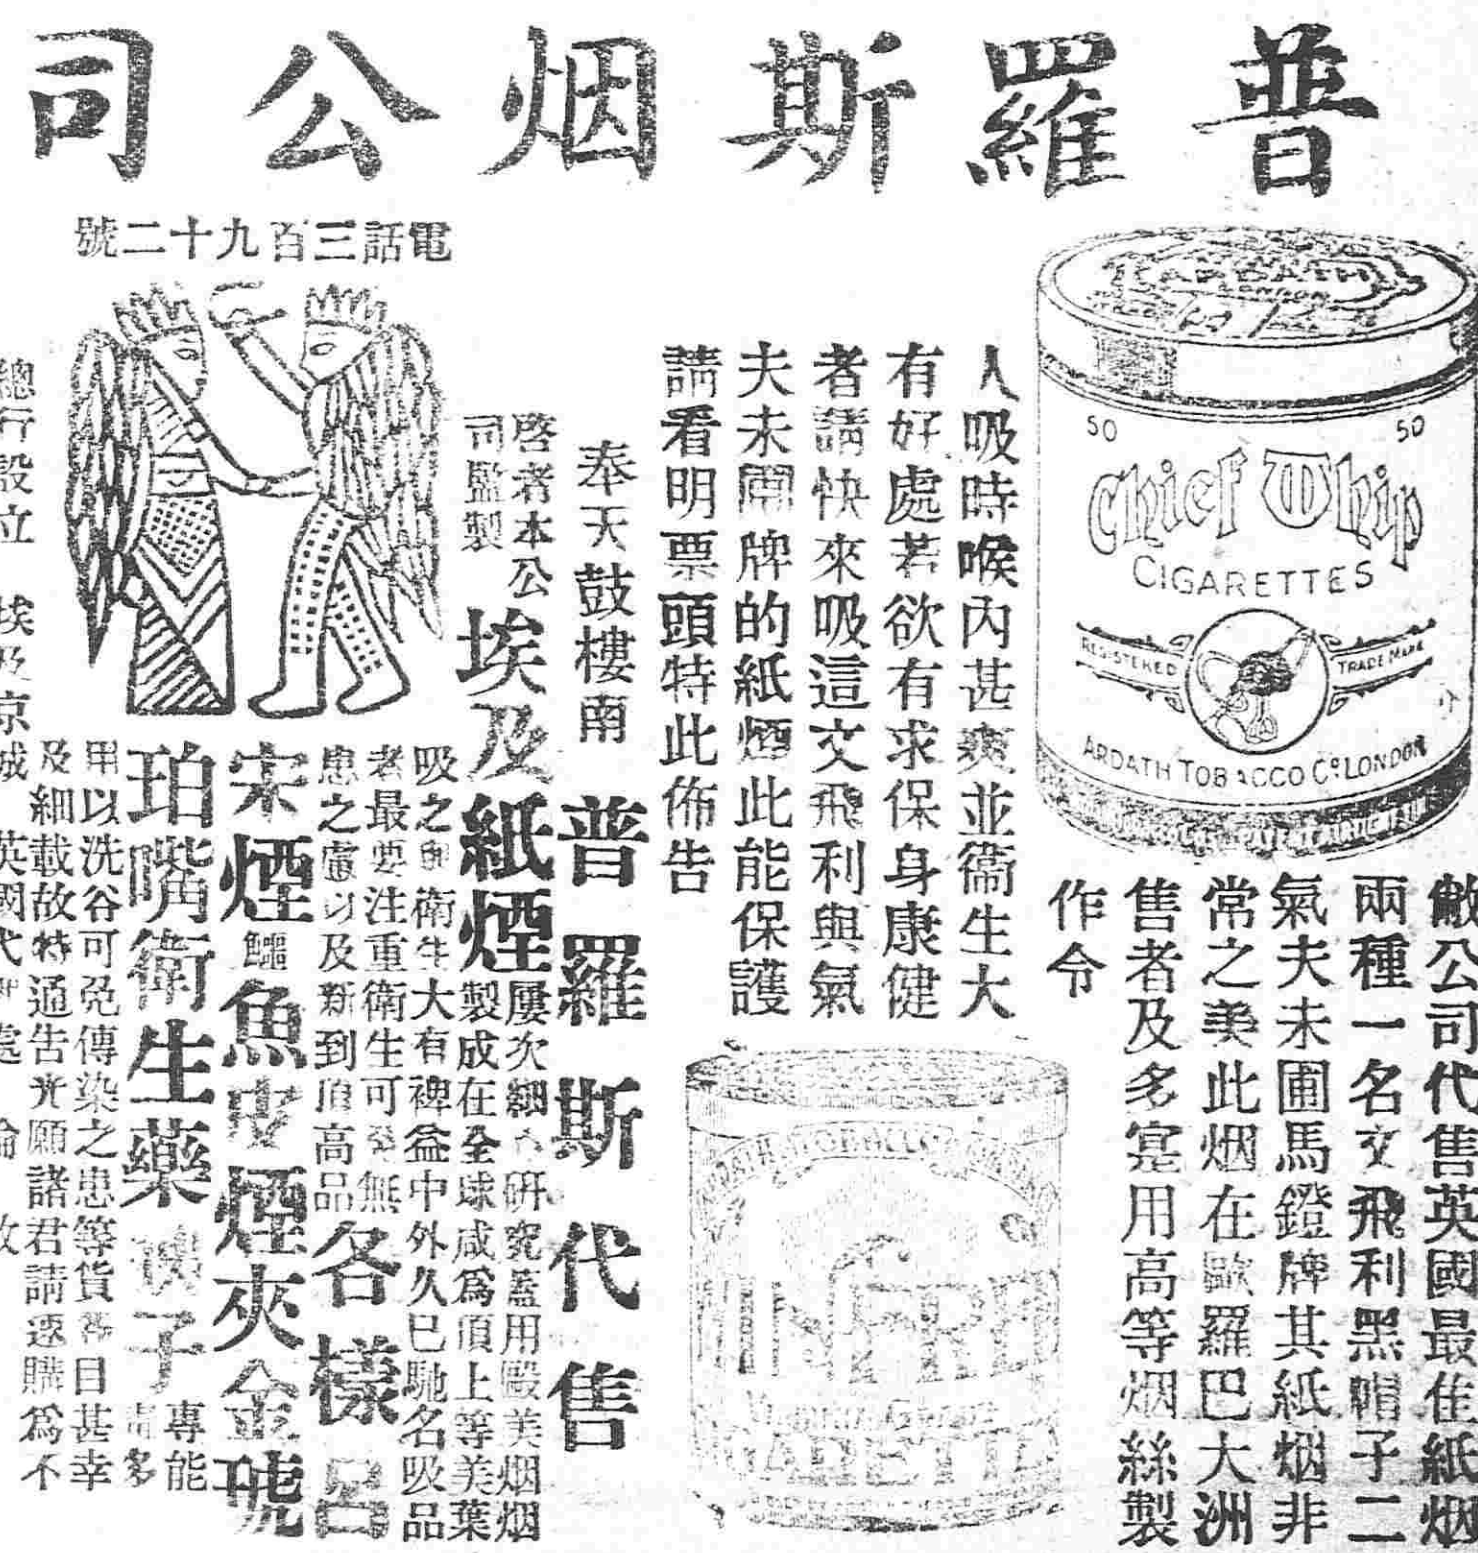 普羅斯烟公司
電話三百九十二號
50
50
Chief Whip
CIGARETTES
REGISTERED
TRADE MARK
ARDATH TOBACCO Co LONDON
敝公司代售英國最佳紙烟
兩種一名文飛利黑帽子二
氣夫未圃馬鐙牌其紙烟非
常之美此烟在歐羅巴大洲
售者及多寔用高等烟絲製
作令
人吸時喉內甚爽並衞生大
有好處若欲有求保身康健
者請快來吸這文飛利與氣
夫未開牌的紙煙此能保護
請看明票頭特此佈告
奉天鼓樓南
普羅斯代售
啓者本公
司監製
埃及紙煙
屢次細研究監用殹美烟烟
製成在全球咸爲頂上等美葉
吸之衛生大有裨益中外久巳馳名吸品
者最要注重衛生可無
患之慮以及新到頂高品
各樣呂
宋煙
鱷魚皮煙夾金琥
珀嘴衛生藥
子
專能
多
用以洗谷可免傳染之患等貨目甚幸
及細載故特通告光願諸君請速購爲不
總行設立
埃及京城
英國代處